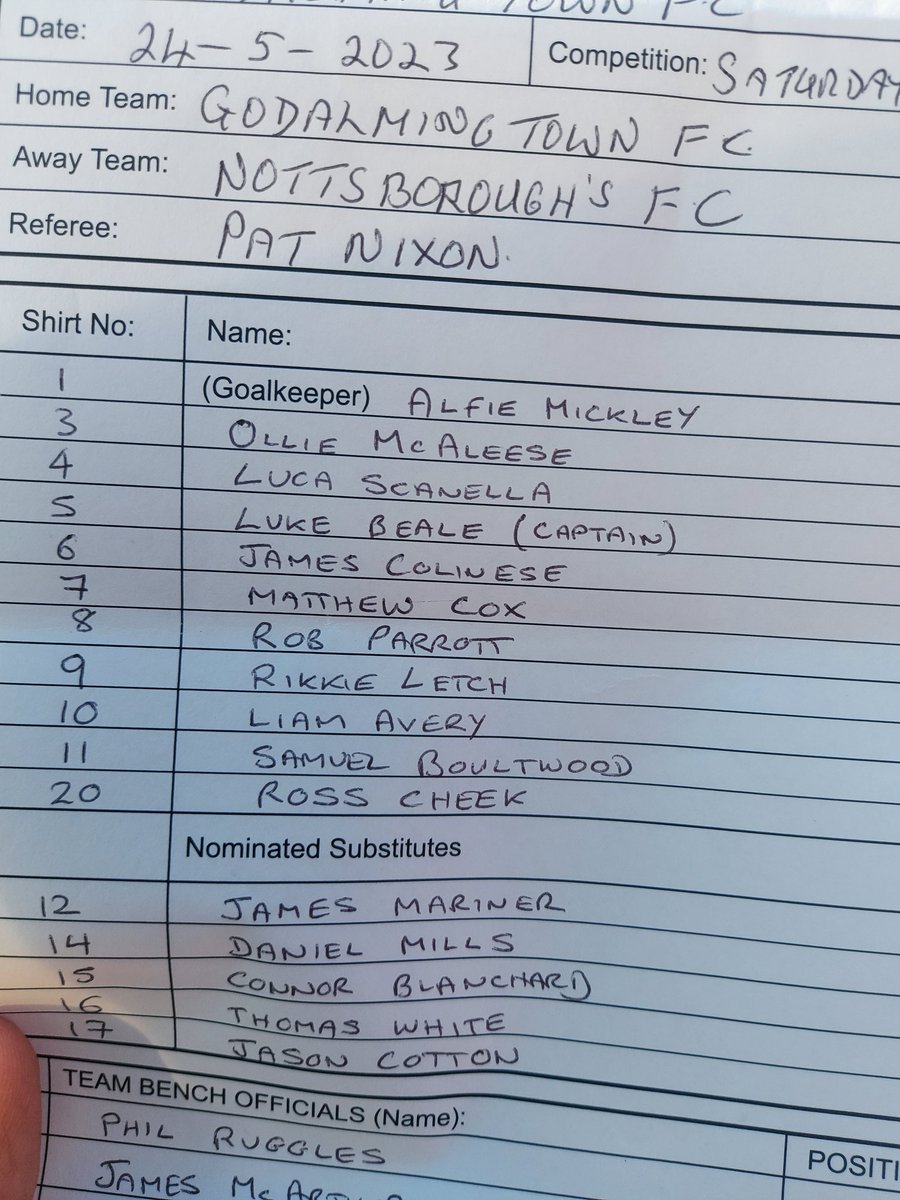 TOWN FC
Date: 24-5-2023 Competition: SATURDAY
Home Team: GODALMING TOWN FC
Away Team: NOTTSBOROUGH'S F.C
Referee: PAT NIXON.
Shirt No: Name:
1 (Goalkeeper) ALFIE MICKLEY
3 OLLIE MCALEESE
4 LUCA SCANELLA
5 LUKE BEALE (CAPTAIN)
6 JAMES COLINESE
7 MATTHEW COX
8 ROB PARROTT
9 RIKKIE LETCH
10 LIAM AVERY
11 SAMUEL BOULTWOOD
20 ROSS CHEEK
Nominated Substitutes
12 JAMES MARINER
14 DANIEL MILLS
15 CONNOR BLANCHARD
16 THOMAS WHITE
17 JASON COTTON
TEAM BENCH OFFICIALS (Name):
PHIL RUGGLES POSITI
JAMES